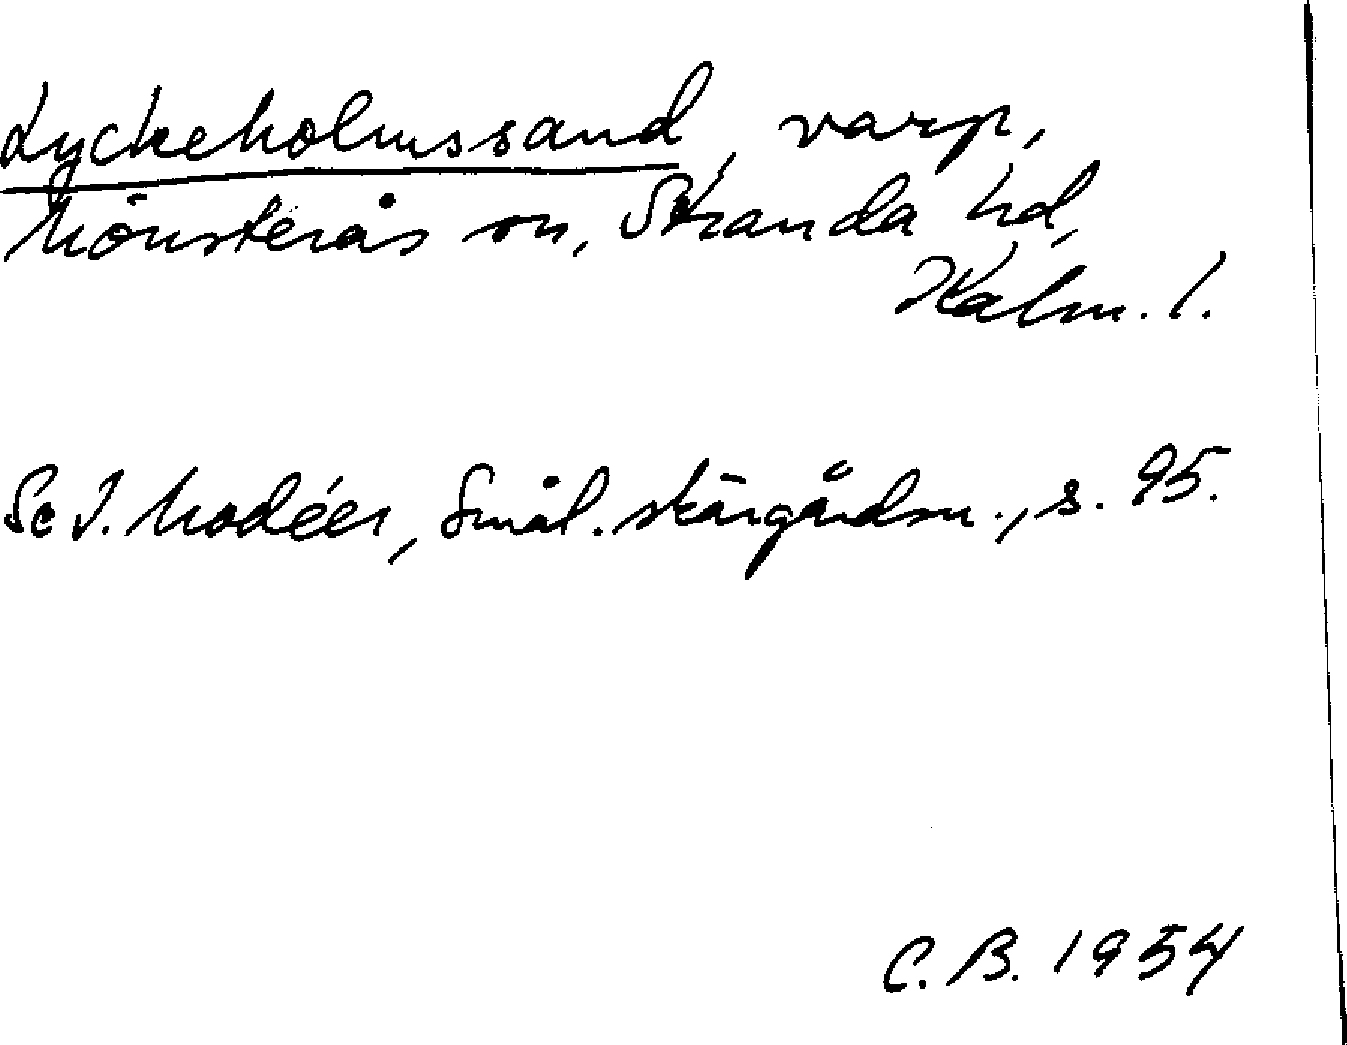 Lyckeholmssand, varp,
Mönsterås sn, Stranda hd,
Kalm. l.
Se I. Modéer, Smål. skärgårdsn., s. 95.
C. B. 1954